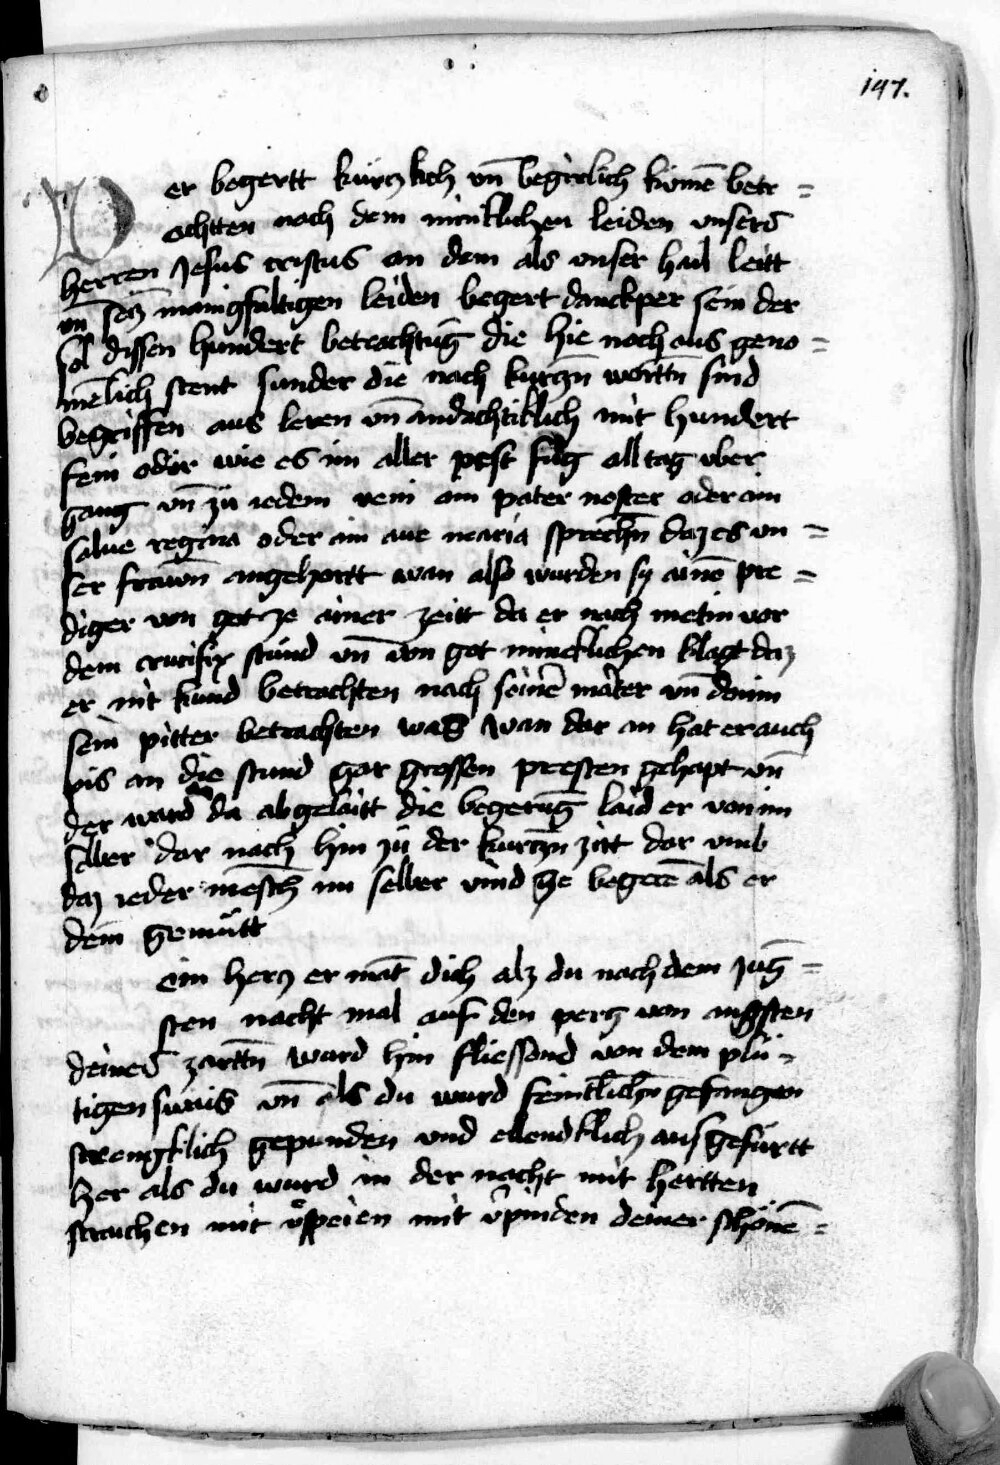 197.
Wer begertt kürczlich vn̄ begirlich kümē betr=
achtten nach dem minklichen leiden vnsers
herren Jesus cristus an dem als vnser hail leitt
vn̄ seiz manigfaltigen leiden begert danckper sein der
sol dissen hundert betrachtūg die hie noch aus geno=
mēlich stent sunder die nach kurczn̄ wortn̄ sind
begriffen aus leren vn̄ andachtiklich mit hundert
fein oder wie es im aller pest füg all tag vber
hang vn̄ zü iedem veni ain pater noster oder ain
salue regina oder ain aue maria sprechn̄ daz es vn=
ser frawn̄ angehortt wan also wurden sy ainē pre=
diger von got ze ainer zeitt da er nach metin vor
dem crucifix stünd vn̄ von got minneklichen klagt daz
er nit kund betrachten nach seinē marter vn̄ dom im
sein pitter betrachten was wan dar an hat er auch
pis an die stund gar grossen presten gehapt vn̄
der ward da abgelaitt die begerūg laid er von im
selber dar nach hin zü der kurczn̄ zitt dar vmb
daz ieder mēsch im selber vind ze begerē als er
dem̄ gemütt
ein hercz er māt dich alz du nach dem jūg=
sten nacht mal auf den perg von angsten
deines zarttn̄ ward hin fliessend von dem plü=
tigen swais vn̄ als du wurd feintlichn̄ gefangen
strengklich gepunden vnd ellendklich ausgefürtt
her als du wurd in der nacht mit hertten
straichen mit v̊speien mit v̊pinden deiner schönē=